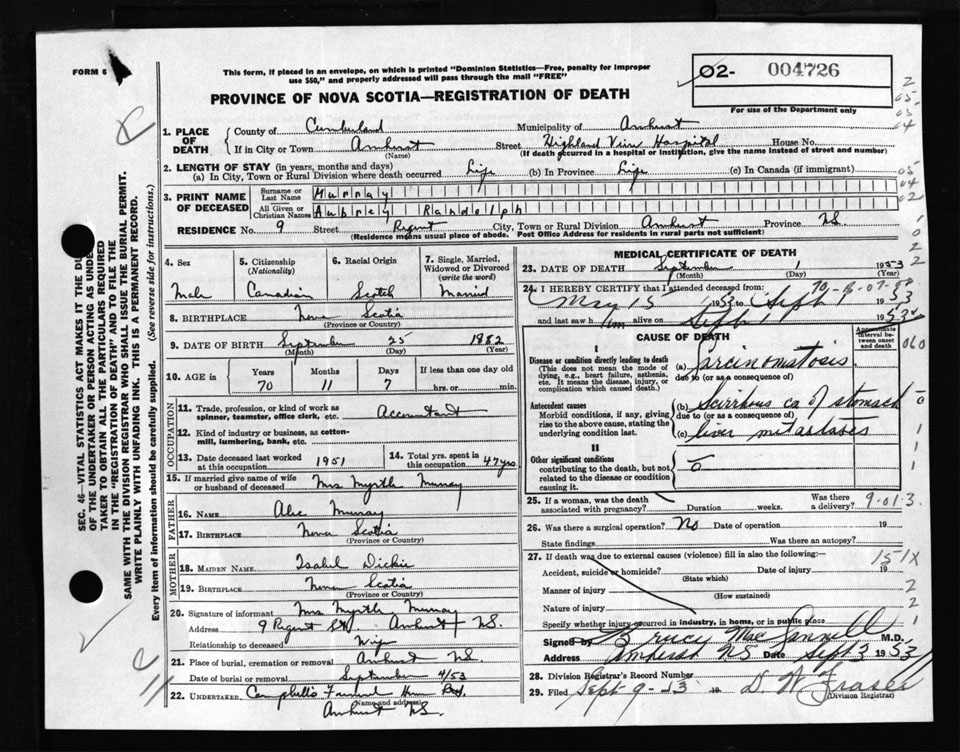 FORM 6
This form, if placed in an envelope, on which is printed "Dominion Statistics—Free, penalty for improper
use $50," and properly addressed will pass through the mail "FREE"
02- 004726
For use of the Department only
PROVINCE OF NOVA SCOTIA—REGISTRATION OF DEATH
1. PLACE OF DEATH
County of Cumberland Municipality of Amherst
If in City or Town Amherst Street Highland View Hospital House No.
(Name) (If death occurred in a hospital or institution, give the name instead of street and number)
2. LENGTH OF STAY (in years, months and days)
(a) In City, Town or Rural Division where death occurred Life (b) In Province Life (c) In Canada (if immigrant)
3. PRINT NAME OF DECEASED
Surname or Last Name Murray
All Given or Christian Names Aubrey Randolph
RESIDENCE No. 9 Street Regent City, Town or Rural Division Amherst Province N.S.
(Residence means usual place of abode. Post Office Address for residents in rural parts not sufficient)
4. Sex
Male
5. Citizenship (Nationality)
Canadian
6. Racial Origin
Scotch
7. Single, Married, Widowed or Divorced (write the word)
Married
8. BIRTHPLACE Nova Scotia
(Province or Country)
9. DATE OF BIRTH September 25 1882
(Month) (Day) (Year)
10. AGE in Years Months Days If less than one day
70 11 7 hrs. or min.
OCCUPATION
11. Trade, profession, or kind of work as spinner, teamster, office clerk, etc. Accountant
12. Kind of industry or business, as cotton-mill, lumbering, bank, etc.
13. Date deceased last worked at this occupation 1951
14. Total yrs. spent in this occupation 47 yrs.
15. If married give name of wife or husband of deceased Mrs Myrtle Murray
FATHER
16. NAME Alec Murray
17. BIRTHPLACE Nova Scotia
(Province or Country)
MOTHER
18. MAIDEN NAME Isabel Dickie
19. BIRTHPLACE Nova Scotia
(Province or Country)
20. Signature of informant Mrs Myrtle Murray
Address 9 Regent St Amherst N.S.
Relationship to deceased Wife
21. Place of burial, cremation or removal Amherst N.S.
Date of burial or removal September 4/53
22. UNDERTAKER Campbells Funeral Home
(Name and address)
Amherst N.S.
MEDICAL CERTIFICATE OF DEATH
23. DATE OF DEATH September 1 1953
(Month) (Day) (Year)
24. I HEREBY CERTIFY that I attended deceased from:
May 15 1953 to Sept 1 1953
and last saw him alive on Sept 1 1953
CAUSE OF DEATH
Approximate interval between onset and death
I
Disease or condition directly leading to death
(This does not mean the mode of dying, e.g., heart failure, asthenia, etc. It means the disease, injury, or complication which caused death.)
(a) Carcinomatosis
due to (or as a consequence of)
Antecedent causes
Morbid conditions, if any, giving rise to the above cause, stating the underlying condition last.
(b) Scirrhous ca of stomach
due to (or as a consequence of)
(c) liver metastases
II
Other significant conditions
contributing to the death, but not related to the disease or condition causing it.
25. If a woman, was the death associated with pregnancy? Duration weeks. Was there a delivery?
9-01.3
26. Was there a surgical operation? No Date of operation 19
State findings Was there an autopsy?
27. If death was due to external causes (violence) fill in also the following:
151X
Accident, suicide or homicide? Date of injury 19
(State which)
Manner of injury
(How sustained)
Nature of injury
Specify whether injury occurred in industry, in home, or in public place
Signed by Bruce MacJannell M.D.
Address Amherst NS Date Sept 3 1953
28. Division Registrar's Record Number
29. Filed Sept-9-53 19 D. W. Fraser
(Division Registrar)
SEC. 46—VITAL STATISTICS ACT MAKES IT THE
OF THE UNDERTAKER OR PERSON ACTING AS
TAKER TO OBTAIN ALL THE PARTICULARS REQUIRED
IN THE "REGISTRATION OF DEATH" AND TO FILE THE
SAME WITH THE DIVISION REGISTRAR WHO SHALL ISSUE THE BURIAL PERMIT.
WRITE PLAINLY WITH UNFADING INK. THIS IS A PERMANENT RECORD.
Every item of information should be carefully supplied. (See reverse side for instructions.)